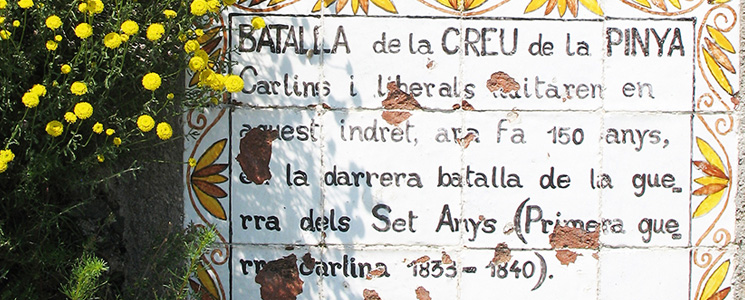 BATALLA de la CREU de la PINYA
Carlins i liberals lluitaren en
aquest indret, ara fa 150 anys,
en la darrera batalla de la gue-
rra dels Set Anys (Primera gue-
rra Carlina 1833 - 1840).